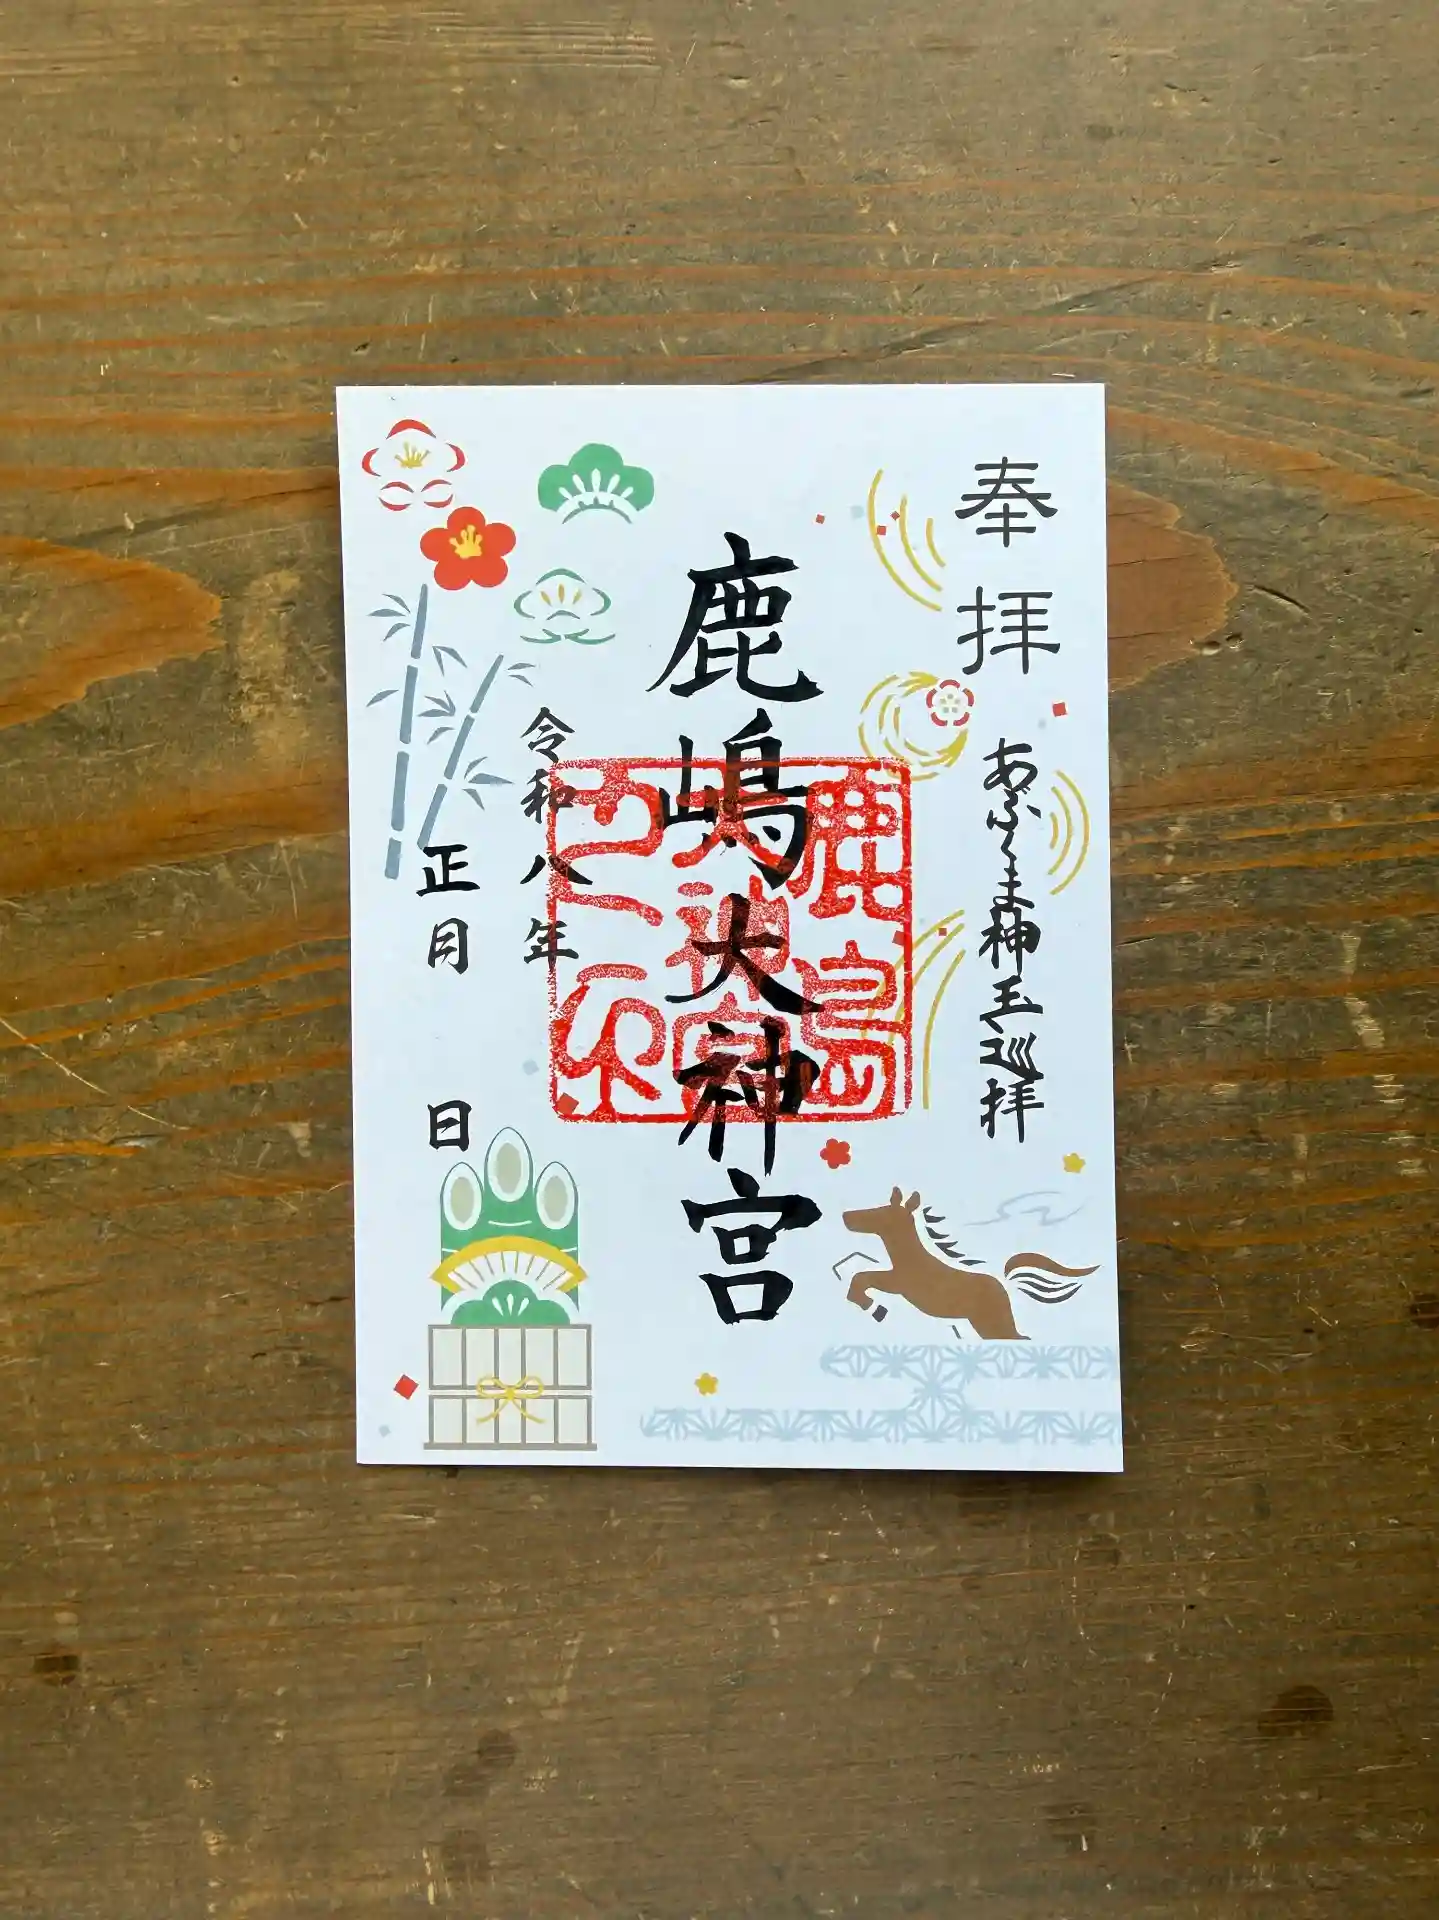 奉拝
あぶくま神玉巡拝
鹿嶋大神宮
鹿島
大神宮
之印
令和八年
正月 日